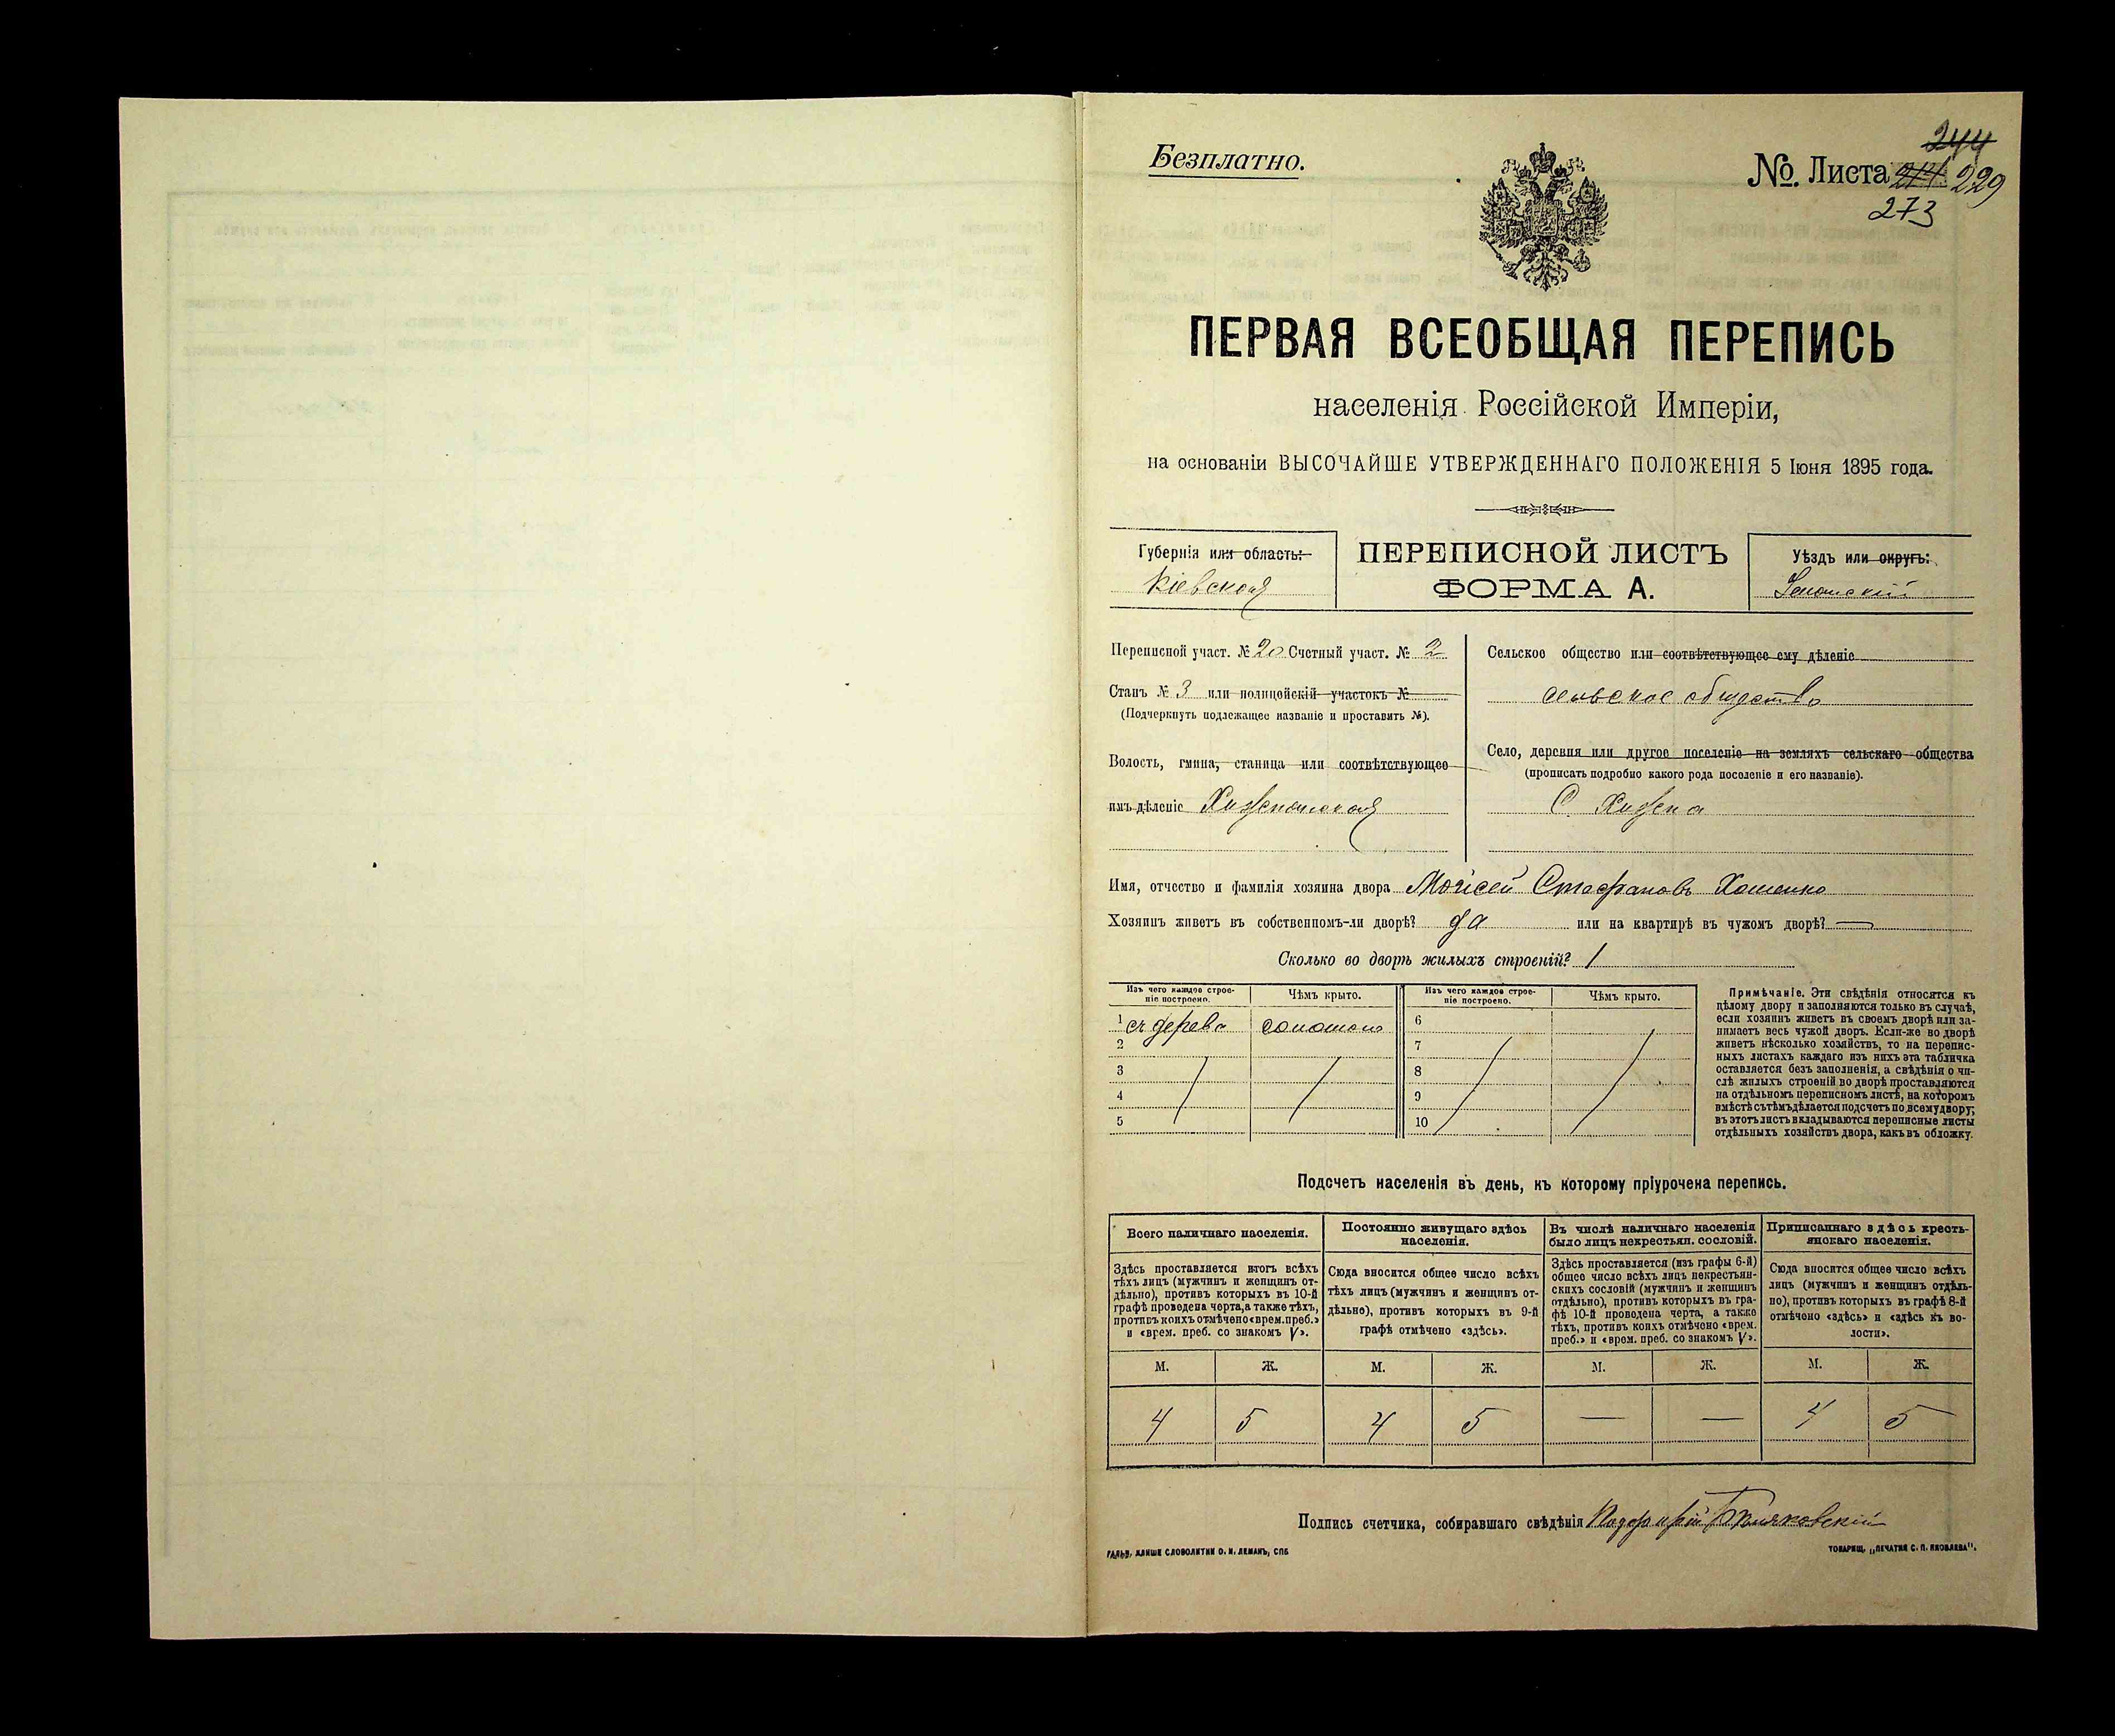 Безплатно.
244
№. Листа 229
273
ПЕРВАЯ ВСЕОБЩАЯ ПЕРЕПИСЬ
населенія Россійской Имперіи,
на основаніи ВЫСОЧАЙШЕ УТВЕРЖДЕННАГО ПОЛОЖЕНІЯ 5 Іюня 1895 года.
Губернія или область:
Кіевская
ПЕРЕПИСНОЙ ЛИСТЪ
ФОРМА А.
Уѣздъ или округъ:
Переписной участ. № 20 Счетный участ. № 2
Станъ № 3 или полицейскій участокъ №
(Подчеркнуть подлежащее названіе и проставить №).
Волость, гмина, станица или соотвѣтствующее
имъ дѣленіе
Сельское общество или соотвѣтствующее ему дѣленіе
сельское общество
Село, деревня или другое поселеніе на земляхъ сельскаго общества
(прописать подробно какого рода поселеніе и его названіе).
С. Хижена
Имя, отчество и фамилія хозяина двора Моисей Стефановъ
Хозяинъ живетъ въ собственномъ-ли дворѣ? да или на квартирѣ въ чужомъ дворѣ? —
Сколько во дворѣ жилыхъ строеній? 1
Изъ чего каждое строе-
ніе построено.
Чѣмъ крыто.
1 съ дерева соломою
2
3
4
5
Изъ чего каждое строе-
ніе построено.
Чѣмъ крыто.
6
7
8
9
10
Примѣчаніе. Эти свѣдѣнія относятся къ
цѣлому двору и заполняются только въ случаѣ,
если хозяинъ живетъ въ своемъ дворѣ или за-
нимаетъ весь чужой дворъ. Если-же во дворѣ
живетъ нѣсколько хозяйствъ, то на перепис-
ныхъ листахъ каждаго изъ нихъ эта табличка
оставляется безъ заполненія, а свѣдѣнія о чи-
слѣ жилыхъ строеній во дворѣ проставляются
на отдѣльномъ переписномъ листѣ, на которомъ
вмѣстѣ съ тѣмъ дѣлается подсчетъ по всему двору;
въ этотъ листъ вкладываются переписные листы
отдѣльныхъ хозяйствъ двора, какъ въ обложку.
Подсчетъ населенія въ день, къ которому пріурочена перепись.
Всего наличнаго населенія.
Здѣсь проставляется итогъ всѣхъ
тѣхъ лицъ (мужчинъ и женщинъ от-
дѣльно), противъ которыхъ въ 10-й
графѣ проведена черта, а также тѣхъ,
противъ коихъ отмѣчено «врем. преб.»
и «врем. преб. со знакомъ V».
М. Ж.
4 5
Постоянно живущаго здѣсь
населенія.
Сюда вносится общее число всѣхъ
тѣхъ лицъ (мужчинъ и женщинъ от-
дѣльно), противъ которыхъ въ 9-й
графѣ отмѣчено «здѣсь».
М. Ж.
4 5
Въ числѣ наличнаго населенія
было лицъ некрестьян. сословій.
Здѣсь проставляется (изъ графы 6-й)
общее число всѣхъ лицъ некрестьян-
скихъ сословій (мужчинъ и женщинъ
отдѣльно), противъ которыхъ въ гра-
фѣ 10-й проведена черта, а также
тѣхъ, противъ коихъ отмѣчено «врем.
преб.» и «врем. преб. со знакомъ V».
М. Ж.
— —
Приписаннаго здѣсь кресть-
янскаго населенія.
Сюда вносится общее число всѣхъ
лицъ (мужчинъ и женщинъ отдѣль-
но), противъ которыхъ въ графѣ 8-й
отмѣчено «здѣсь» и «здѣсь къ во-
лости».
М. Ж.
4 5
Подпись счетчика, собиравшаго свѣдѣнія
ГАЛЬВ. КЛИШЕ СЛОВОЛИТНИ О. И. ЛЕМАНЪ, СПБ
ТОВАРИЩ. „ПЕЧАТНЯ С. П. ЯКОВЛЕВА".